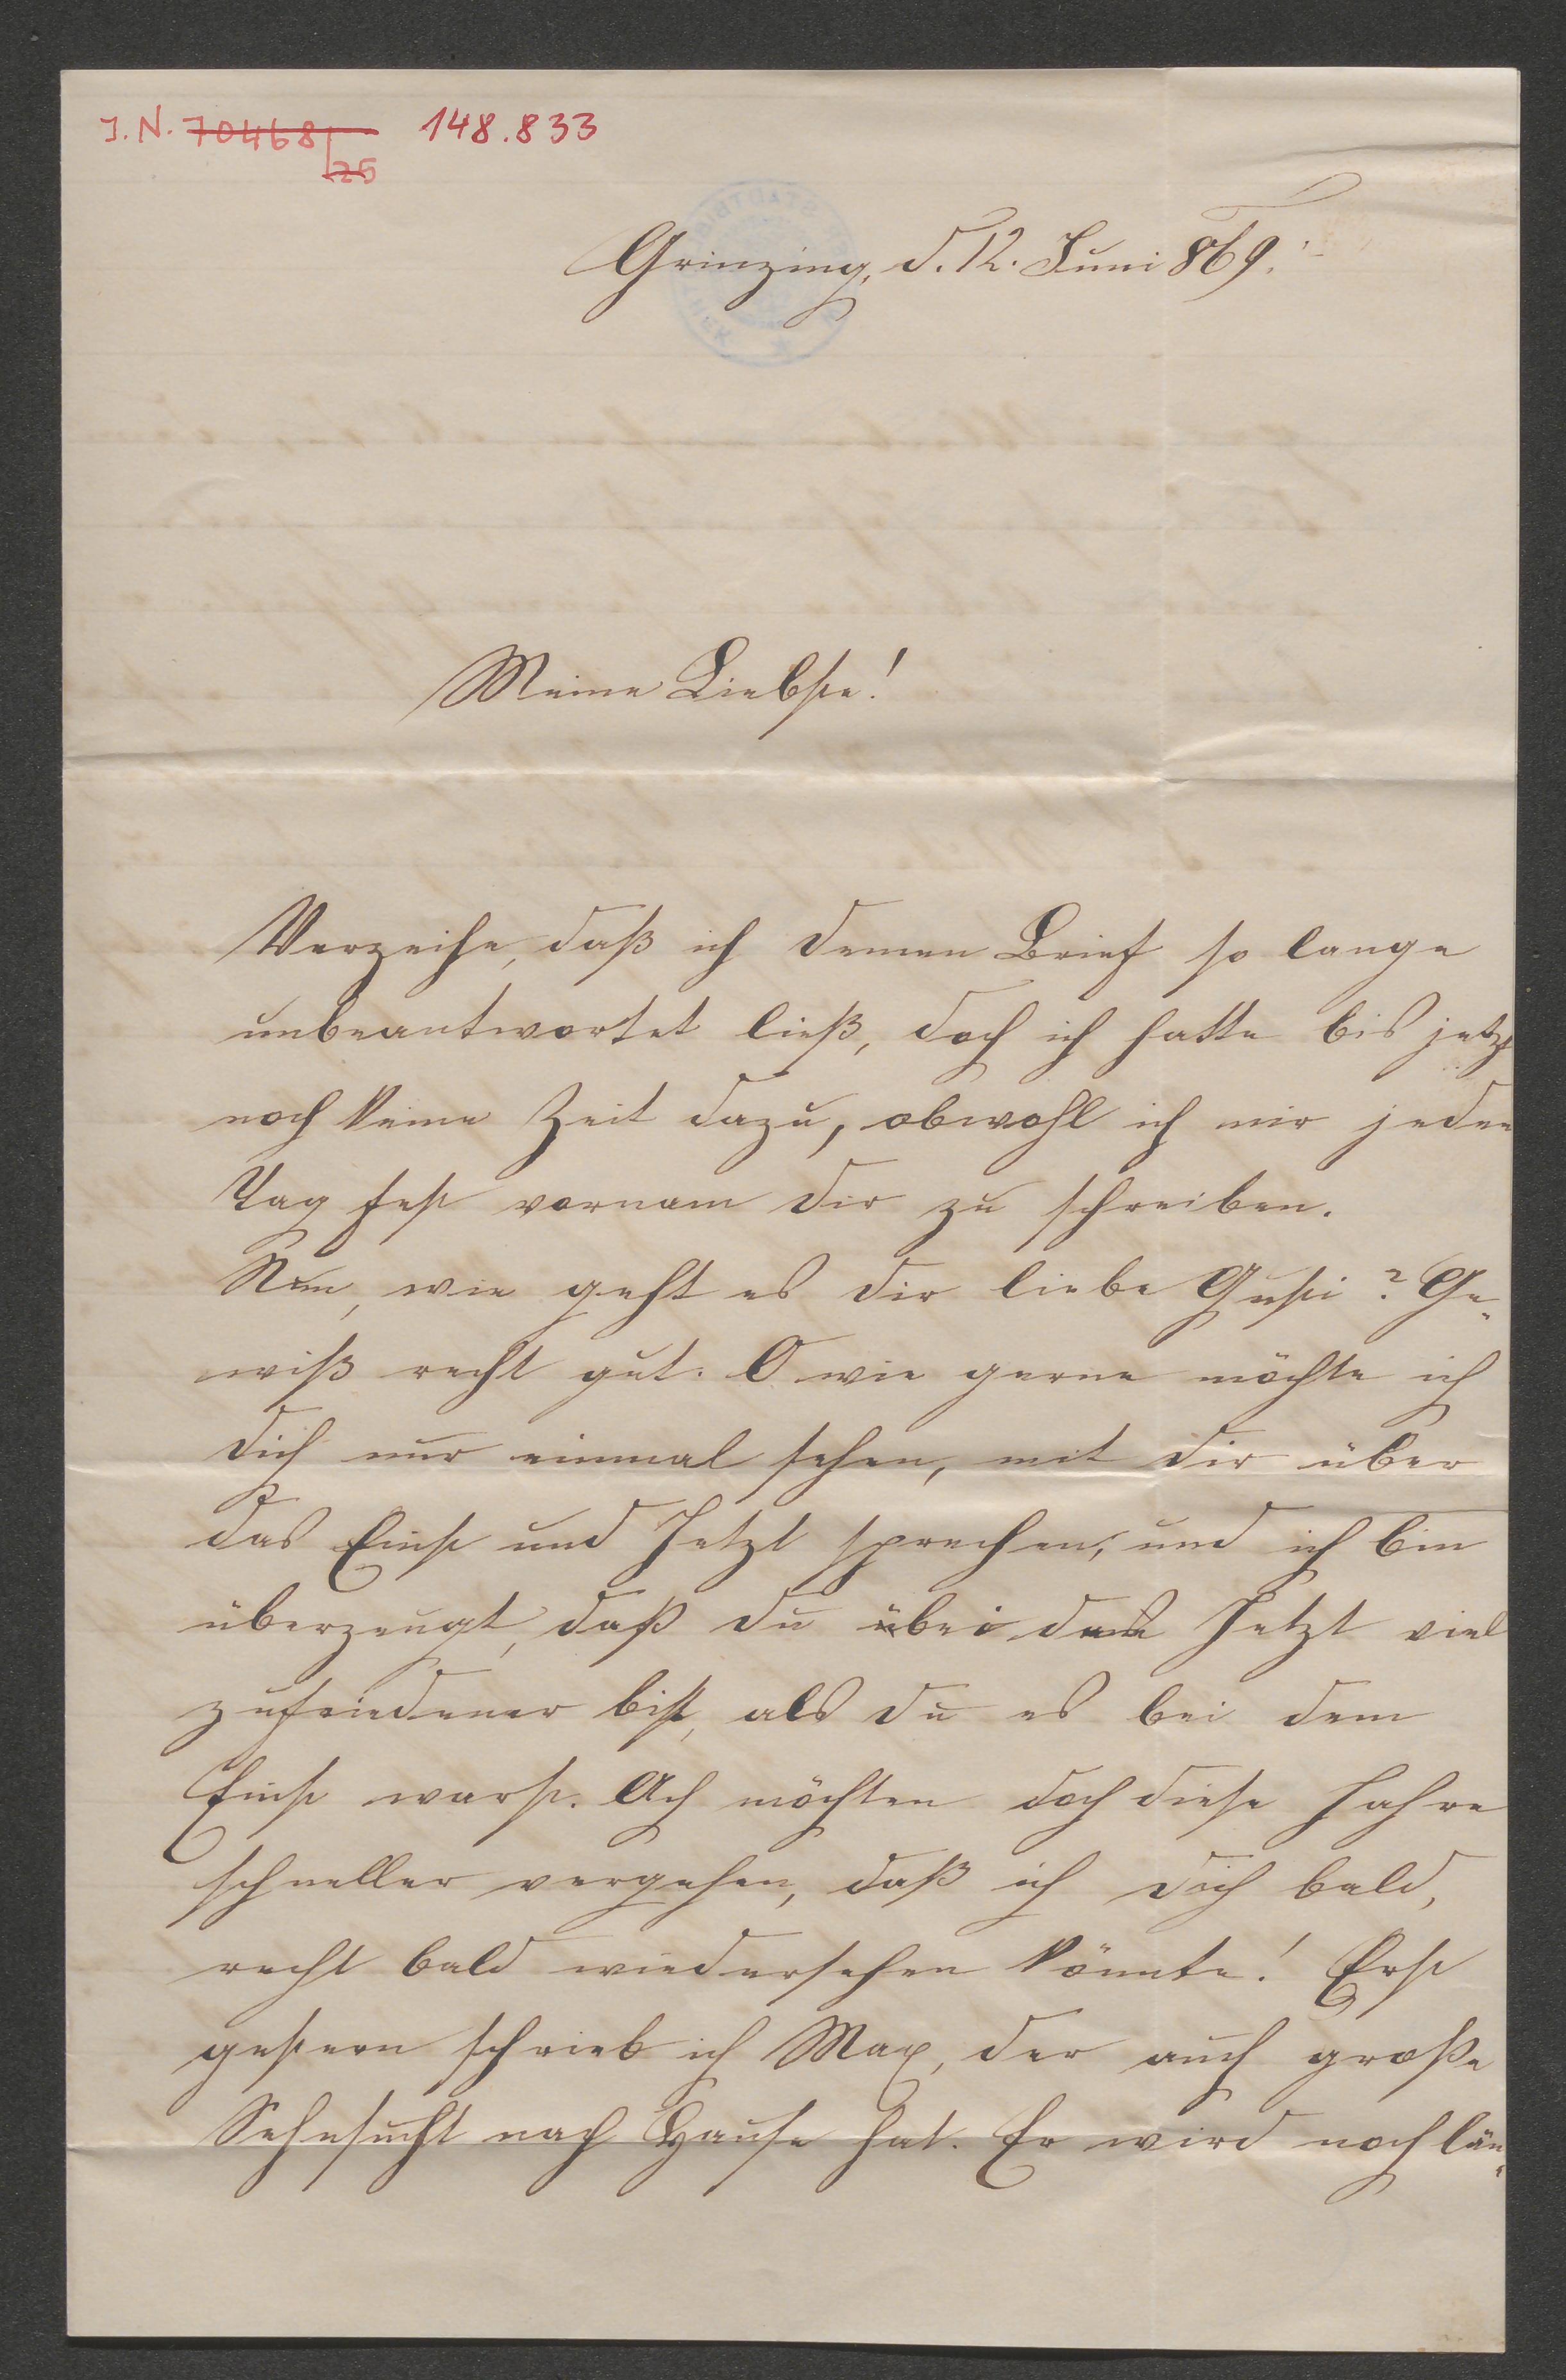 J.N. 70468 148.833
25
Grinzing, d. 12. Juni 869.
Meine Liebste!
Verzeihe, daß ich deinen Brief so lange
unbeantwortet ließ, doch ich hatte bis jetzt
noch keine Zeit dazu, obwohl ich mir jeden
Tag fest vornam dir zu schreiben.
Nun, wie geht es dir liebe Gusti? Ge-
wiß recht gut. O wie gerne möchte ich
dich nur einmal sehen, mit dir über
das Einst und Jetzt sprechen, und ich bin
überzeugt, daß du bei dem Jetzt viel
zufriedener bist, als du es bei dem
Einst warst. Ach möchten doch diese Jahre
schneller vergehen, daß ich dich bald,
recht bald wiedersehen könnte! Erst
gestern schrieb ich Max, der auch große
Sehnsucht nach Hause hat. Er wird noch län-